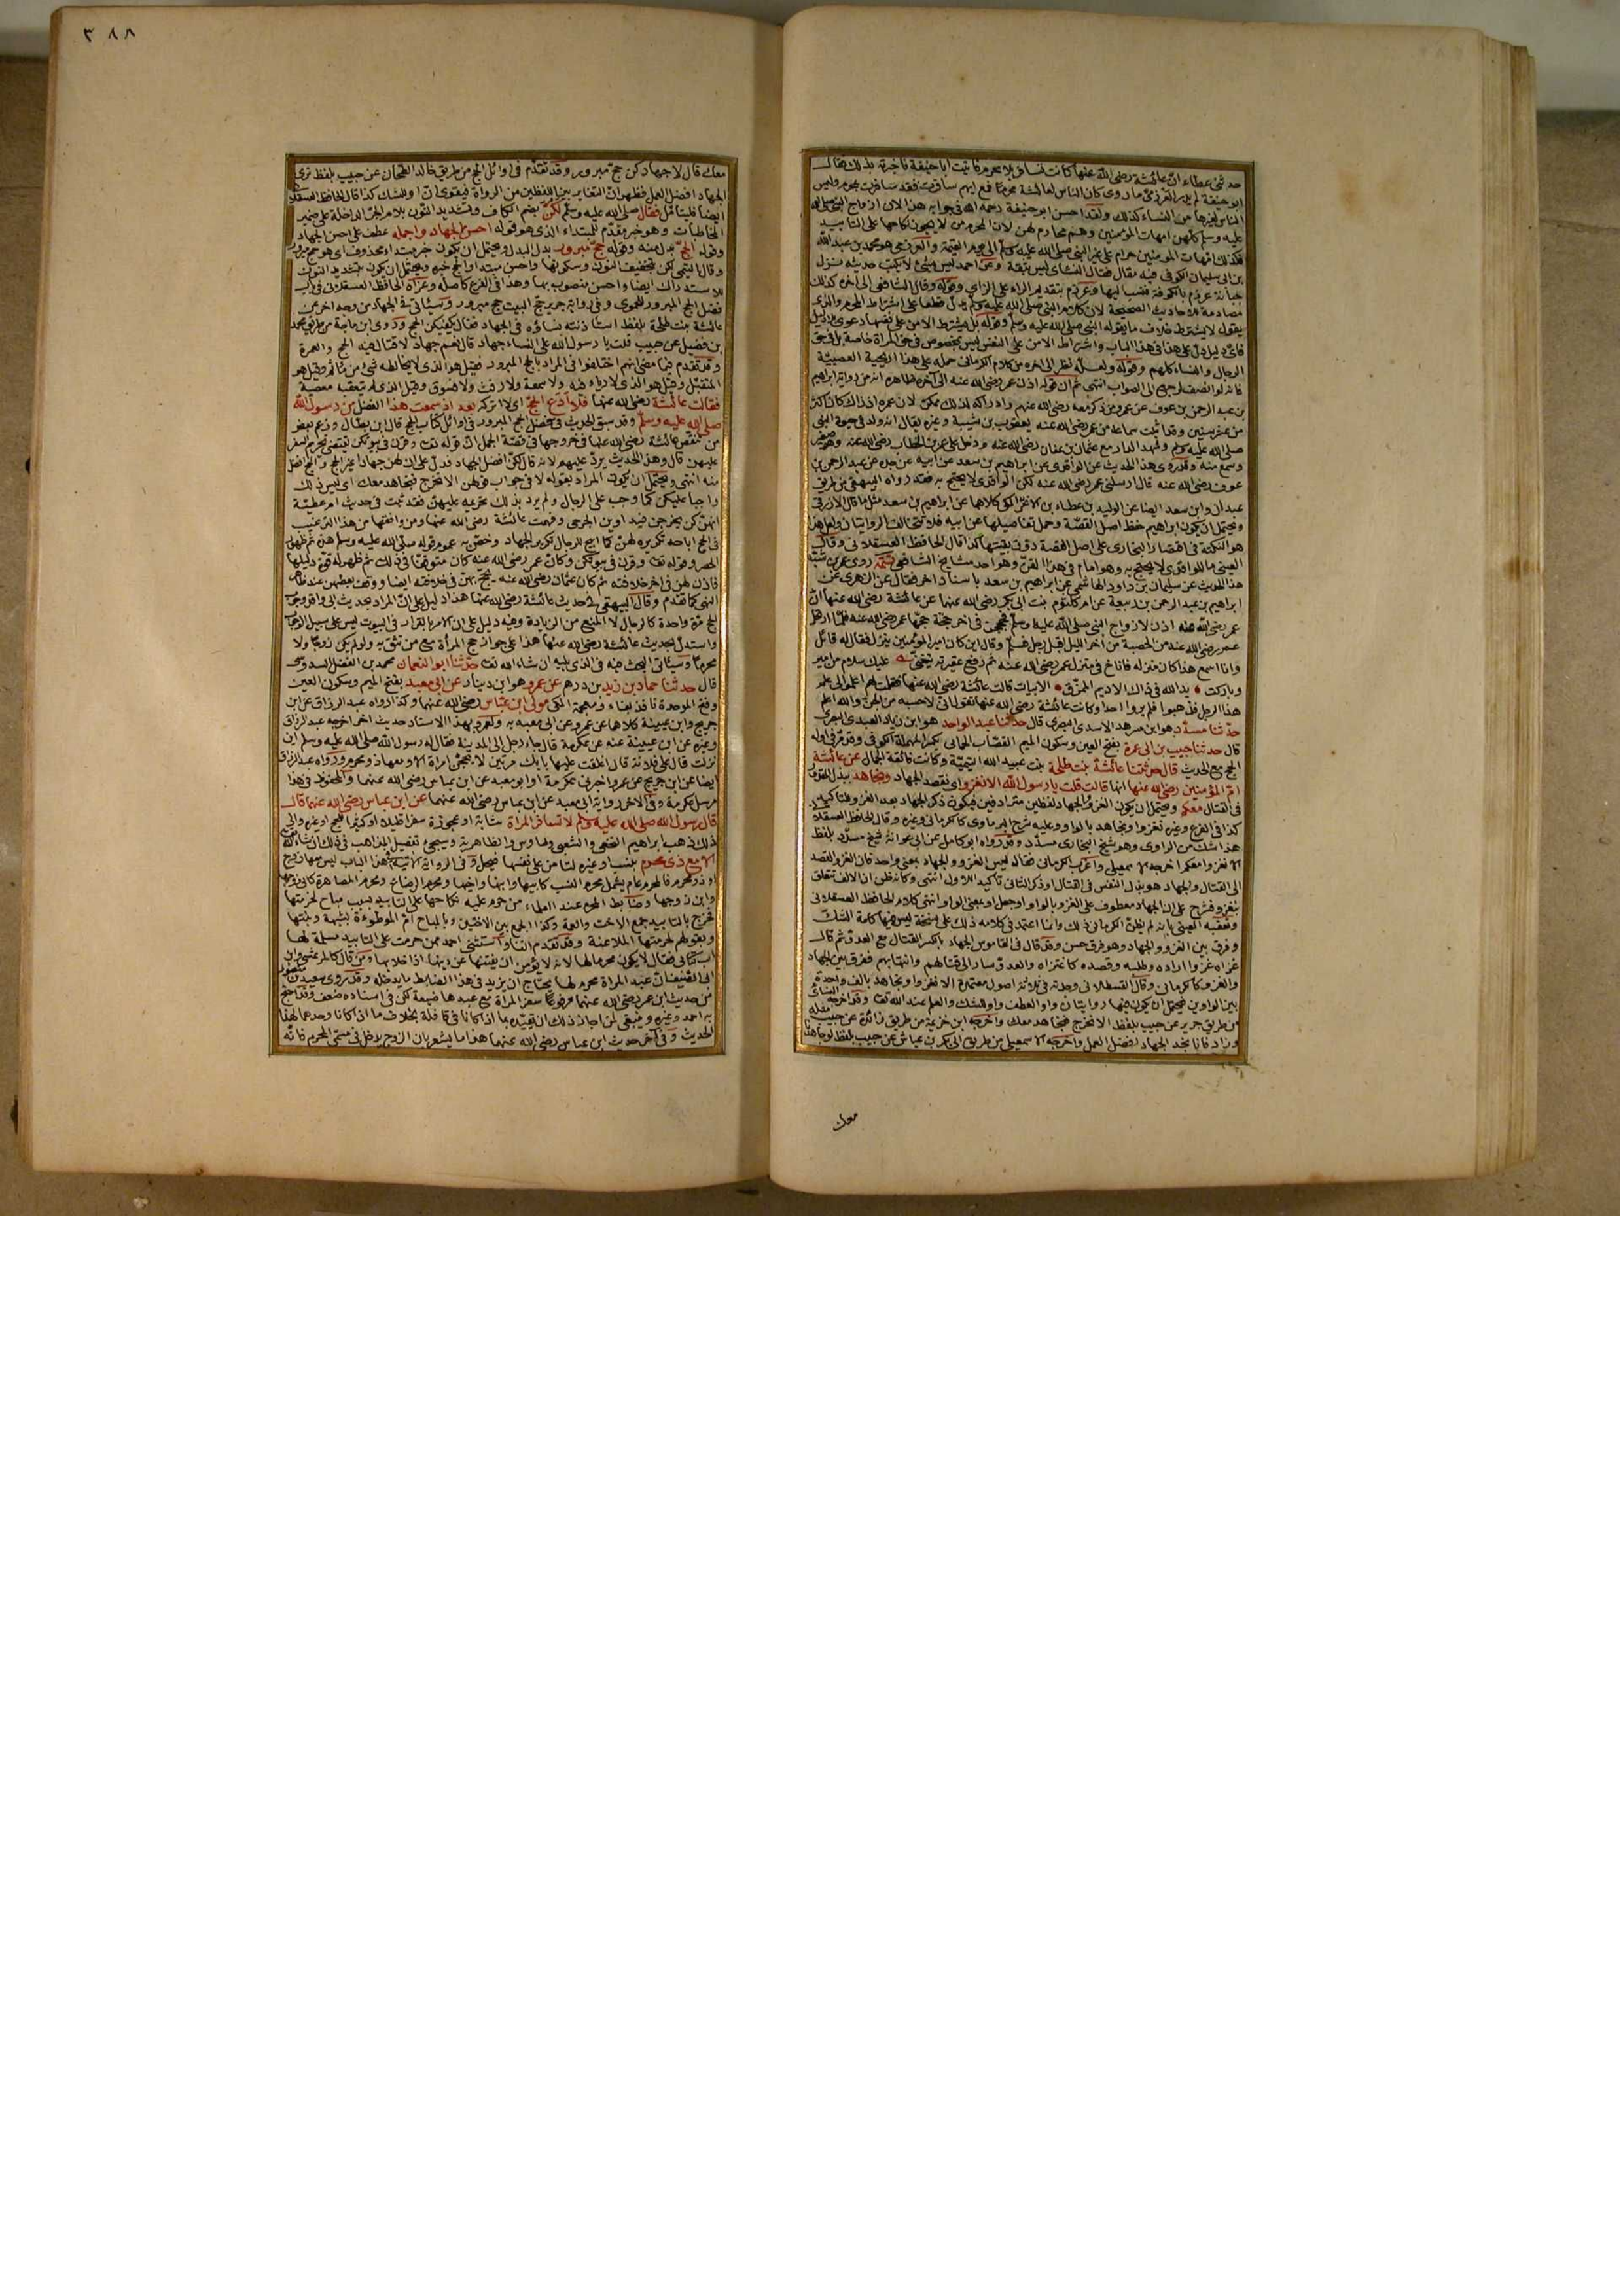 ٣٨٨
حدثنى عطاء ان عائشة رضى الله عنها كانت تسافر بلا محرم فاتيت ابا حنيفة فاخبرته بذلك فقال
ابو حنيفة لم يدر العرزمى ما روى كان الناس لعائشة محرما فمع ايهم سافرت فقد سافرت بمحرم وليس
الناس لغيرها من النساء كذلك ولقد احسن ابو حنيفة رحمه الله فى جوابه هذا لان ازواج النبى صلى الله
عليه وسلم كلهن امهات المؤمنين وهم محارم لهن لان المحرم من لا يجوز نكاحها على التأبيد
فكذلك امهات المؤمنين حرام على غير النبى صلى الله عليه وسلم الى يوم القيمة والعرزمى هو محمد بن عبد الله
بن ابى سليمان الكوفى فيه مقال فقال النسائى ليس بثقة وعن احمد ليس بشئ لا يكتب حديثه نزل
جبانة عرزم بالكوفة فنسب اليها وعرزم بتقديم الراء على الزاى وقوله وقال الشافعى الى اخره كذلك
مصادمة الاحاديث الصحيحة لان كلام النبى صلى الله عليه وسلم يدل قطعا على اشتراط المحرم والذى
يقول لا يشترط خلاف ما يقوله النبى صلى الله عليه وسلم وقوله بل يشترط الامن على نفسها دعوى بلا دليل
فاى دليل دل على هذا فى هذا الباب واشتراط الامن على النفس ليس بمخصوص فى حق المرأة خاصة بل فى حق
الرجال والنساء كلهم وقوله ولعله نظر الى اخره من كلام الكرمانى حمله على هذا اريحية العصبية
فانه لو انصف لرجع الى الصواب انتهى ثم ان قوله اذن عمر رضى الله عنه الى آخره ظاهره انه من رواية ابراهيم
بن عبد الرحمن بن عوف عن عمر ومن ذكر معه رضى الله عنهم وادراكه لذلك ممكن لان عمره اذ ذاك كان اكثر
من عشر سنين وقد اثبت سماعه من عمر رضى الله عنه يعقوب بن شيبة وغيره يقال انه ولد فى حيوة النبى
صلى الله عليه وسلم وشهد الدار مع عثمان بن عفان رضى الله عنه ودخل على عمر بن الخطاب رضى الله عنه وهو صغير
وسمع منه وقد روى هذا الحديث عن الواقدى عن ابراهيم بن سعد عن ابيه عن جده عن عبد الرحمن بن
عوف رضى الله عنه قال ارسلنى عمر رضى الله عنه لكن الواقدى لا يحتج به فقد رواه البيهقى من طريق
عبدان وابن سعد ايضا عن الوليد بن عطاء بن الاغر المكى كلاهما عن ابراهيم بن سعد مثل ما قال الازرقى
ويحتمل ان يكون ابراهيم حفظ اصل القصة وحمل تفاصيلها عن ابيه فلا تتخالف الروايتان ولعل هذا
هو النكتة فى اقتصار البخارى على اصل القصة دون بقيتها كذا قال الحافظ العسقلانى وقال
العينى ما للواقدى لا يحتج به وهو امام فى هذا الفن وهو احد مشايخ الشافعى تتمة روى عمر بن شبة
هذا الحديث عن سليمان بن داود الهاشمى عن ابراهيم بن سعد باسناد اخر فقال عن الزهرى عن
ابراهيم بن عبد الرحمن بن ربيعة عن ام كلثوم بنت ابى بكر رضى الله عنها عن عائشة رضى الله عنها ان
عمر رضى الله عنه اذن لازواج النبى صلى الله عليه وسلم فحججن فى اخر حجة حجها عمر رضى الله عنه فلما ارتحل
عمر رضى الله عنه من الحصبة من اخر الليل اقبل رجل فسلم وقال اين كان امير المؤمنين ينزل فقال له قائل
وانا اسمع هذا كان منزله فاناخ فى منزل عمر رضى الله عنه ثم رفع عقيرته يتغنى عليك سلام من امير
وباركت يد الله فى ذاك الاديم الممزق الابيات قالت عائشة رضى الله عنها فقلت لهم اعلموا لى علم
هذا الرجل فذهبوا فلم يروا احدا وكانت عائشة رضى الله عنها تقول انى لاحسبه من الجن والله اعلم
حدثنا مسدد هو ابن مسرهد الاسدى البصرى قال حدثنا عبد الواحد هو ابن زياد العبدى البصرى
قال حدثنا حبيب بن ابى عمرة بفتح العين وسكون الميم القصاب الحمانى بكسر المهملة الكوفى وقد مر فى اوله
الحج مع الحديث قال حدثتنا عائشة بنت طلحة بنت عبيد الله التيمية وكانت فائقة الجمال عن عائشة
ام المؤمنين رضى الله عنها انها قالت قلت يا رسول الله الا نغزو اى نقصد الجهاد ونجاهد ببذل المقدور
فى القتال معكم ويحتمل ان يكون الغزو والجهاد لفظين مترادفين فيكون ذكر الجهاد بعد الغزو للتاكيد
كذا فى الفرع وغيره نغزوا ونجاهد بالواو وعليه شرح البرماوى كالكرمانى وغيره وقال الحافظ العسقلانى
هذا شك من الراوى وهو شيخ البخارى مسدد وقد رواه ابو كامل عن ابى عوانة شيخ مسدد بلفظ
الا نغزوا معكم اخرجه الاسمعيلى واغرب الكرمانى فقال ليس الغزو والجهاد بمعنى واحد فان الغزو القصد
الى القتال والجهاد هو بذل النفس فى القتال او ذكر الثانى تأكيد اللاول انتهى وكانه ظن ان الالف تتعلق
بنغزو فشرح على ان الجهاد معطوف على الغزو بالواو او جعل او بمعنى الواو انتهى كلام الحافظ العسقلانى
وتعقبه العينى بانه لم يظن الكرمانى ذلك وانما اعتمد فى كلامه ذلك على نسخة ليس فيها كلمة الشك
وفرق بين الغزو والجهاد وهو فرق حسن وقد قال فى القاموس الجهاد بالكسر القتال مع العدو ثم قال
غزاه غزوا اراده وطلبه وقصده كاغتزاه والعدو سار الى قتالهم وانتهابهم ففرق بين الجهاد
والغزو كالكرمانى وقال القسطلانى وجدته فى ثلاثة اصول معتمدة الا نغزو او نجاهد بالف واحدة
بين الواوين فيحتمل ان يكون فيها روايتان واو العطف واو الشك والعلم عند الله تعا وقد اخرجه النسائى
من طريق جرير عن حبيب بلفظ الا نخرج فنجاهد معك واخرجه ابن خزيمة من طريق زائدة عن حبيب مثله
وزاد فانا نجد الجهاد افضل العمل واخرجه الاسمعيلى من طريق ابى بكر بن عياش عن حبيب بلفظ لو جاهدنا
معك
معك قال لا جهادكن حج مبرور وقد تقدم فى اوائل الحج من طريق خالد الطحان عن حبيب بلفظ نرى
الجهاد افضل العمل فظهر ان التغاير بين اللفظين من الرواة فيقوى ان او للشك كذا قال الحافظ العسقلانى
ايضا فليتأمل فقال صلى الله عليه وسلم لكن بضم الكاف وتشديد النون بلام الجر الداخلة على ضمير
المخاطبات وهو خبر مقدم للمبتداء الذى هو قوله احسن الجهاد واجمله عطف على احسن الجهاد
وقوله الحج بدل منه وقوله حج مبرور بدل البدل ويحتمل ان يكون خبر مبتداء محذوف اى هو حج مبرور
وقال التيمى لكن بتخفيف النون وسكونها واحسن مبتدا والحج خبره ويحتمل ان يكون بتشديد النون
للاستدراك ايضا واحسن منصوب بها وهذا فى الفرع كاصله وعزاه الحافظ العسقلانى فى باب
فضل الحج المبرور للحموى وفى رواية جرير حج البيت حج مبرور وسيأتى فى الجهاد من وجه اخر عن
عائشة بنت طلحة بلفظ استاذنته نساؤه فى الجهاد فقال يكفيكن الحج وروى ابن ماجة من طريق محمد
بن فضيل عن حبيب قلت يا رسول الله على النساء جهاد قال نعم جهاد لا قتال فيه الحج والعمرة
وقد تقدم فيما مضى انهم اختلفوا فى المراد بالحج المبرور فقيل هو الذى لا يخالطه شئ من مأثم وقيل هو
المتقبل وقيل هو الذى لا رياء فيه ولا سمعة ولا رفث ولا فسوق وقيل الذى لم يتعقبه معصية
فقالت عائشة رضى الله عنها فلا ادع الحج اى لا اتركه بعد اذ سمعت هذا الفضل من رسول الله
صلى الله عليه وسلم وقد سبق الحديث فى فضل الحج المبرور فى اوائل كتاب الحج قال ابن بطال وزعم بعض
من ينقص عائشة رضى الله عنها فى خروجها فى قصة الجمل ان قوله تعا وقرن فى بيوتكن يقتضى تحريم السفر
عليهن قال وهذا الحديث يرد عليهم لانه قال لكن افضل الجهاد فدل على ان لهن جهادا غير الحج والحج افضل
منه انتهى ويحتمل ان يكون المراد بقوله لا فى جواب قولهن الا نخرج فنجاهد معك اى ليس ذلك
واجبا عليكن كما وجب على الرجال ولم يرد بذلك تحريمه عليهن فقد ثبت فى حديث ام عطية
انهن كن يخرجن فيداوين الجرحى وفهمت عائشة رضى الله عنها ومن وافقها من هذا الترغيب
فى الحج اباحه تكريره لهن كما ابيح للرجال تكرير الجهاد وخص به عموم قوله صلى الله عليه وسلم هذه ثم ظهور
الحصر وقوله تعا وقرن فى بيوتكن وكان عمر رضى الله عنه كان متوقفا فى ذلك ثم ظهر له قوة دليلها
فاذن لهن فى اخر خلافته ثم كان عثمان رضى الله عنه يحج بهن فى خلافته ايضا ووقف بعضهن عند ظاهر
النهى كما تقدم وقال البيهقى فى حديث عائشة رضى الله عنها هذا دليل على ان المراد بحديث ابى واقد وجوب
الحج مرة واحدة كالرجال لا المنع من الزيادة وفيه دليل على ان الامر بالقرار فى البيوت ليس على سبيل الوجوب
واستدل بحديث عائشة رضى الله عنها هذا على جواز حج المرأة مع من تثق به ولو لم يكن زوجا ولا
محرما وسيأتى البحث فيه فى الذى يليه ان شاء الله تعا حدثنا ابو النعمان محمد بن الفضل السدوسى
قال حدثنا حماد بن زيد بن درهم عن عمرو هو ابن دينار عن ابى معبد بفتح الميم وسكون العين
وفتح الموحدة نافذ بفاء ومعجمة المكى مولى ابن عباس رضى الله عنهما وكذا رواه عبد الرزاق عن ابن
جريج وابن عيينة كلاهما عن عمرو عن ابى معبد به ولعمرو بهذا الاسناد حديث اخر اخرجه عبد الرزاق
وغيره عن ابن عيينة عنه عن عكرمة قال جاء رجل الى المدينة فقال له رسول الله صلى الله عليه وسلم اين
نزلت قال على فلانة قال اغلقت عليها بابك مرتين لا تحجن امراة الا ومعها ذو محرم ورواه عبد الرزاق
ايضا عن ابن جريج عن عمرو اخبرنى عكرمة او ابو معبد عن ابن عباس رضى الله عنهما والمحفوظ فى هذا
مرسل عكرمة وفى الاخر رواية ابى معبد عن ابن عباس رضى الله عنهما عن ابن عباس رضى الله عنهما قال
قال رسول الله صلى الله عليه وسلم لا تسافر المراة شابة او عجوزة سفرا قليلا او كثيرا للحج او غيره والى
ذلك ذهب ابراهيم النخعى والشعبى وطاوس والظاهرية وسيجئ تفصيل المذاهب فى ذلك ان شاء الله
الا مع ذى محرم بنسب او غيره لتأمن على نفسها
او ذو محرم فالمحرم عام يشمل محرم النسب كابيها وابنها واخيها ومحرم الرضاع ومحرم المصاهرة كابى زوجها
وابن زوجها وضابط المحرم عند العلماء من حرم عليه نكاحها على التابيد بسبب مباح لحرمتها
فخرج بالتابيد جمع الاخت والعمة وكذا الجمع بين الاختين وبالمباح ام الموطوءة بشبهة وبنتها
وبقولهم لحرمتها الملاعنة وقد تقدم النقل واستثنى احمد من حرمت على التابيد مسلمة لها
اب كتابى فقال لا يكون محرما لها لانه لا يؤمن ان يفتنها عن دينها اذا خلا بها ومن قال
ان عبد المراة محرم لها يحتاج ان يزيد فى هذا الضابط ما يدخله وقد روى سعيد بن منصور
من حديث ابن عمر رضى الله عنهما مرفوعا سفر المراة مع عبدها ضيعة لكن فى اسناده ضعف وقد احتج
به احمد وغيره وينبغى لمن اجاز ذلك ان يقيده بما اذا كانا فى قافلة بخلاف ما اذا كانا وحدهما لهذا
الحديث وفى آخر حديث ابن عباس رضى الله عنهما هذا ما يشعر بان الزوج يدخل فى مسمى المحرم فانه